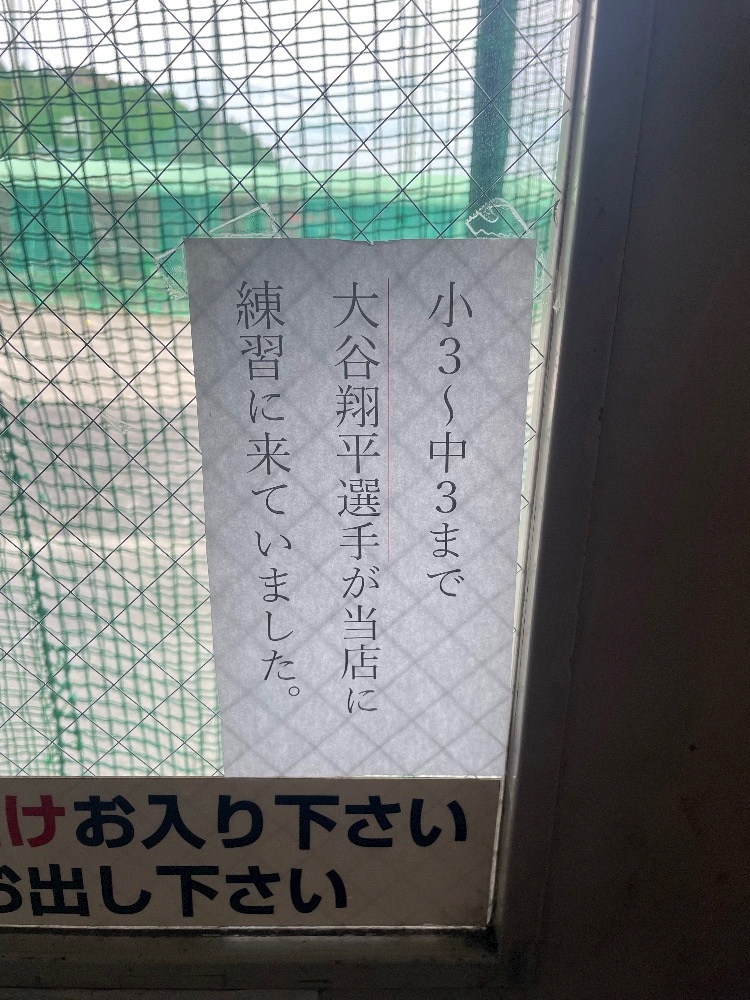 小3～中3まで
大谷翔平選手が当店に
練習に来ていました。
けお入り下さい
お出し下さい